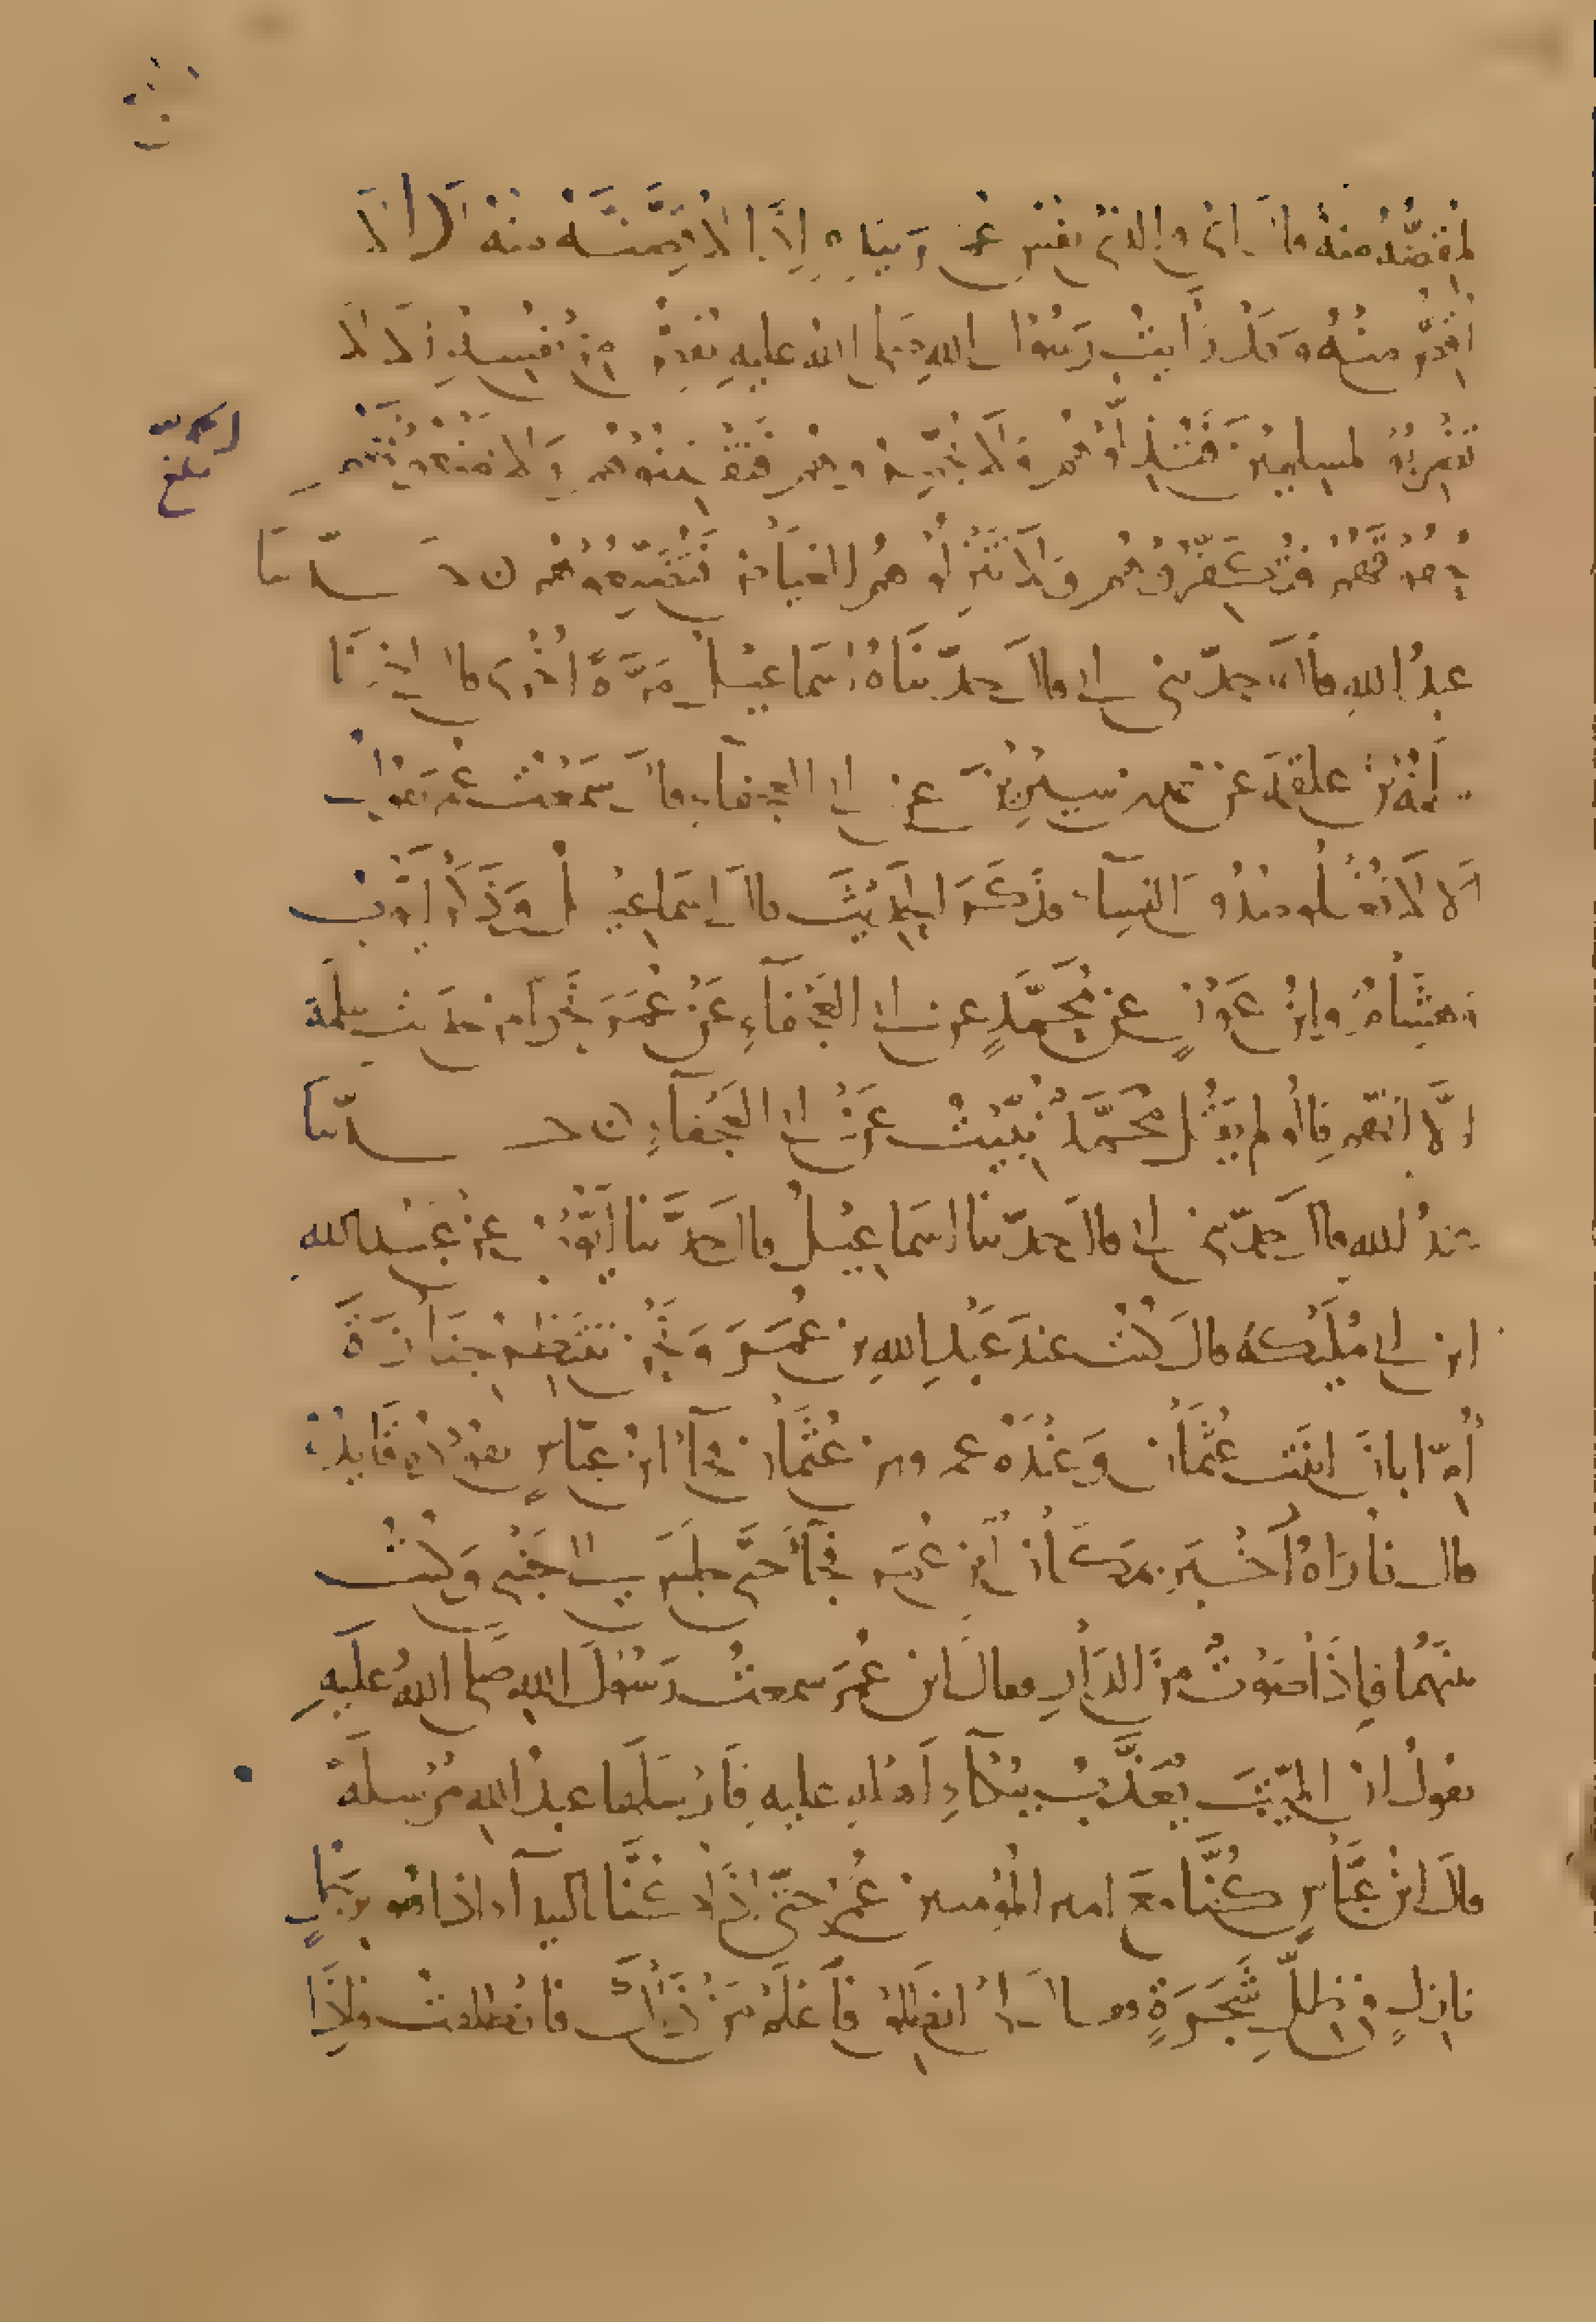 لمقتصه منه قال اي والذي نفس عمر بيده إذا لأقصنه منه أنى لا
أقص منه وقد رأيت رسول الله صلى الله عليه يقص من نفسه ألا لا
تضربوا المسلمين فتذلوهم ولا تجمروهم فتفتنوهم ولا تمنعوهم
حقوقهم فتكفروهم ولا تنزلوهم الغياض فتضيعوهم ن حدثنا
عبد الله قال حدثني أبي قال حدثناه اسماعيل مرة أخرى قال اخبرنا
سلمة بن علقمة عن محمد بن سيرين عن أبي العجفاء قال سمعت عمر يقول
ألا لا تغلوا صدق النساء فذكر الحديث قال اسماعيل وذكر أيوب
وهشام وابن عون عن محمد عن أبي العجفاء عن عمر نحوا من حديث سلمة
إلا أنهم قالوا لم يقل محمد نبئت عن أبي العجفاء ن حدثنا
عبد الله قال حدثني أبي قال حدثنا اسماعيل قال حدثنا أيوب عن عبد الله
ابن أبي مليكة قال كنت عند عبد الله بن عمر ونحن ننتظر جنازة
أم ابان ابنت عثمان وعنده عمرو بن عثمان فجاء ابن عباس يقوده قايده
قال فأراه أخبره بمكان ابن عمر فجاء حتى جلس الى جنبي وكنت
بينهما فإذا صوت من الدار فقال ابن عمر سمعت رسول الله صلى الله عليه
يقول ان الميت يعذب ببكاء أهله عليه فأرسلها عبد الله مرسلة
قال ابن عباس كنا مع امير المؤمنين عمر حتى إذا كنا بالبيداء إذا هو برجل
نازل في ظل شجرة فقال لي انطلق فاعلم من ذاك فانطلقت فإذا
بلغ